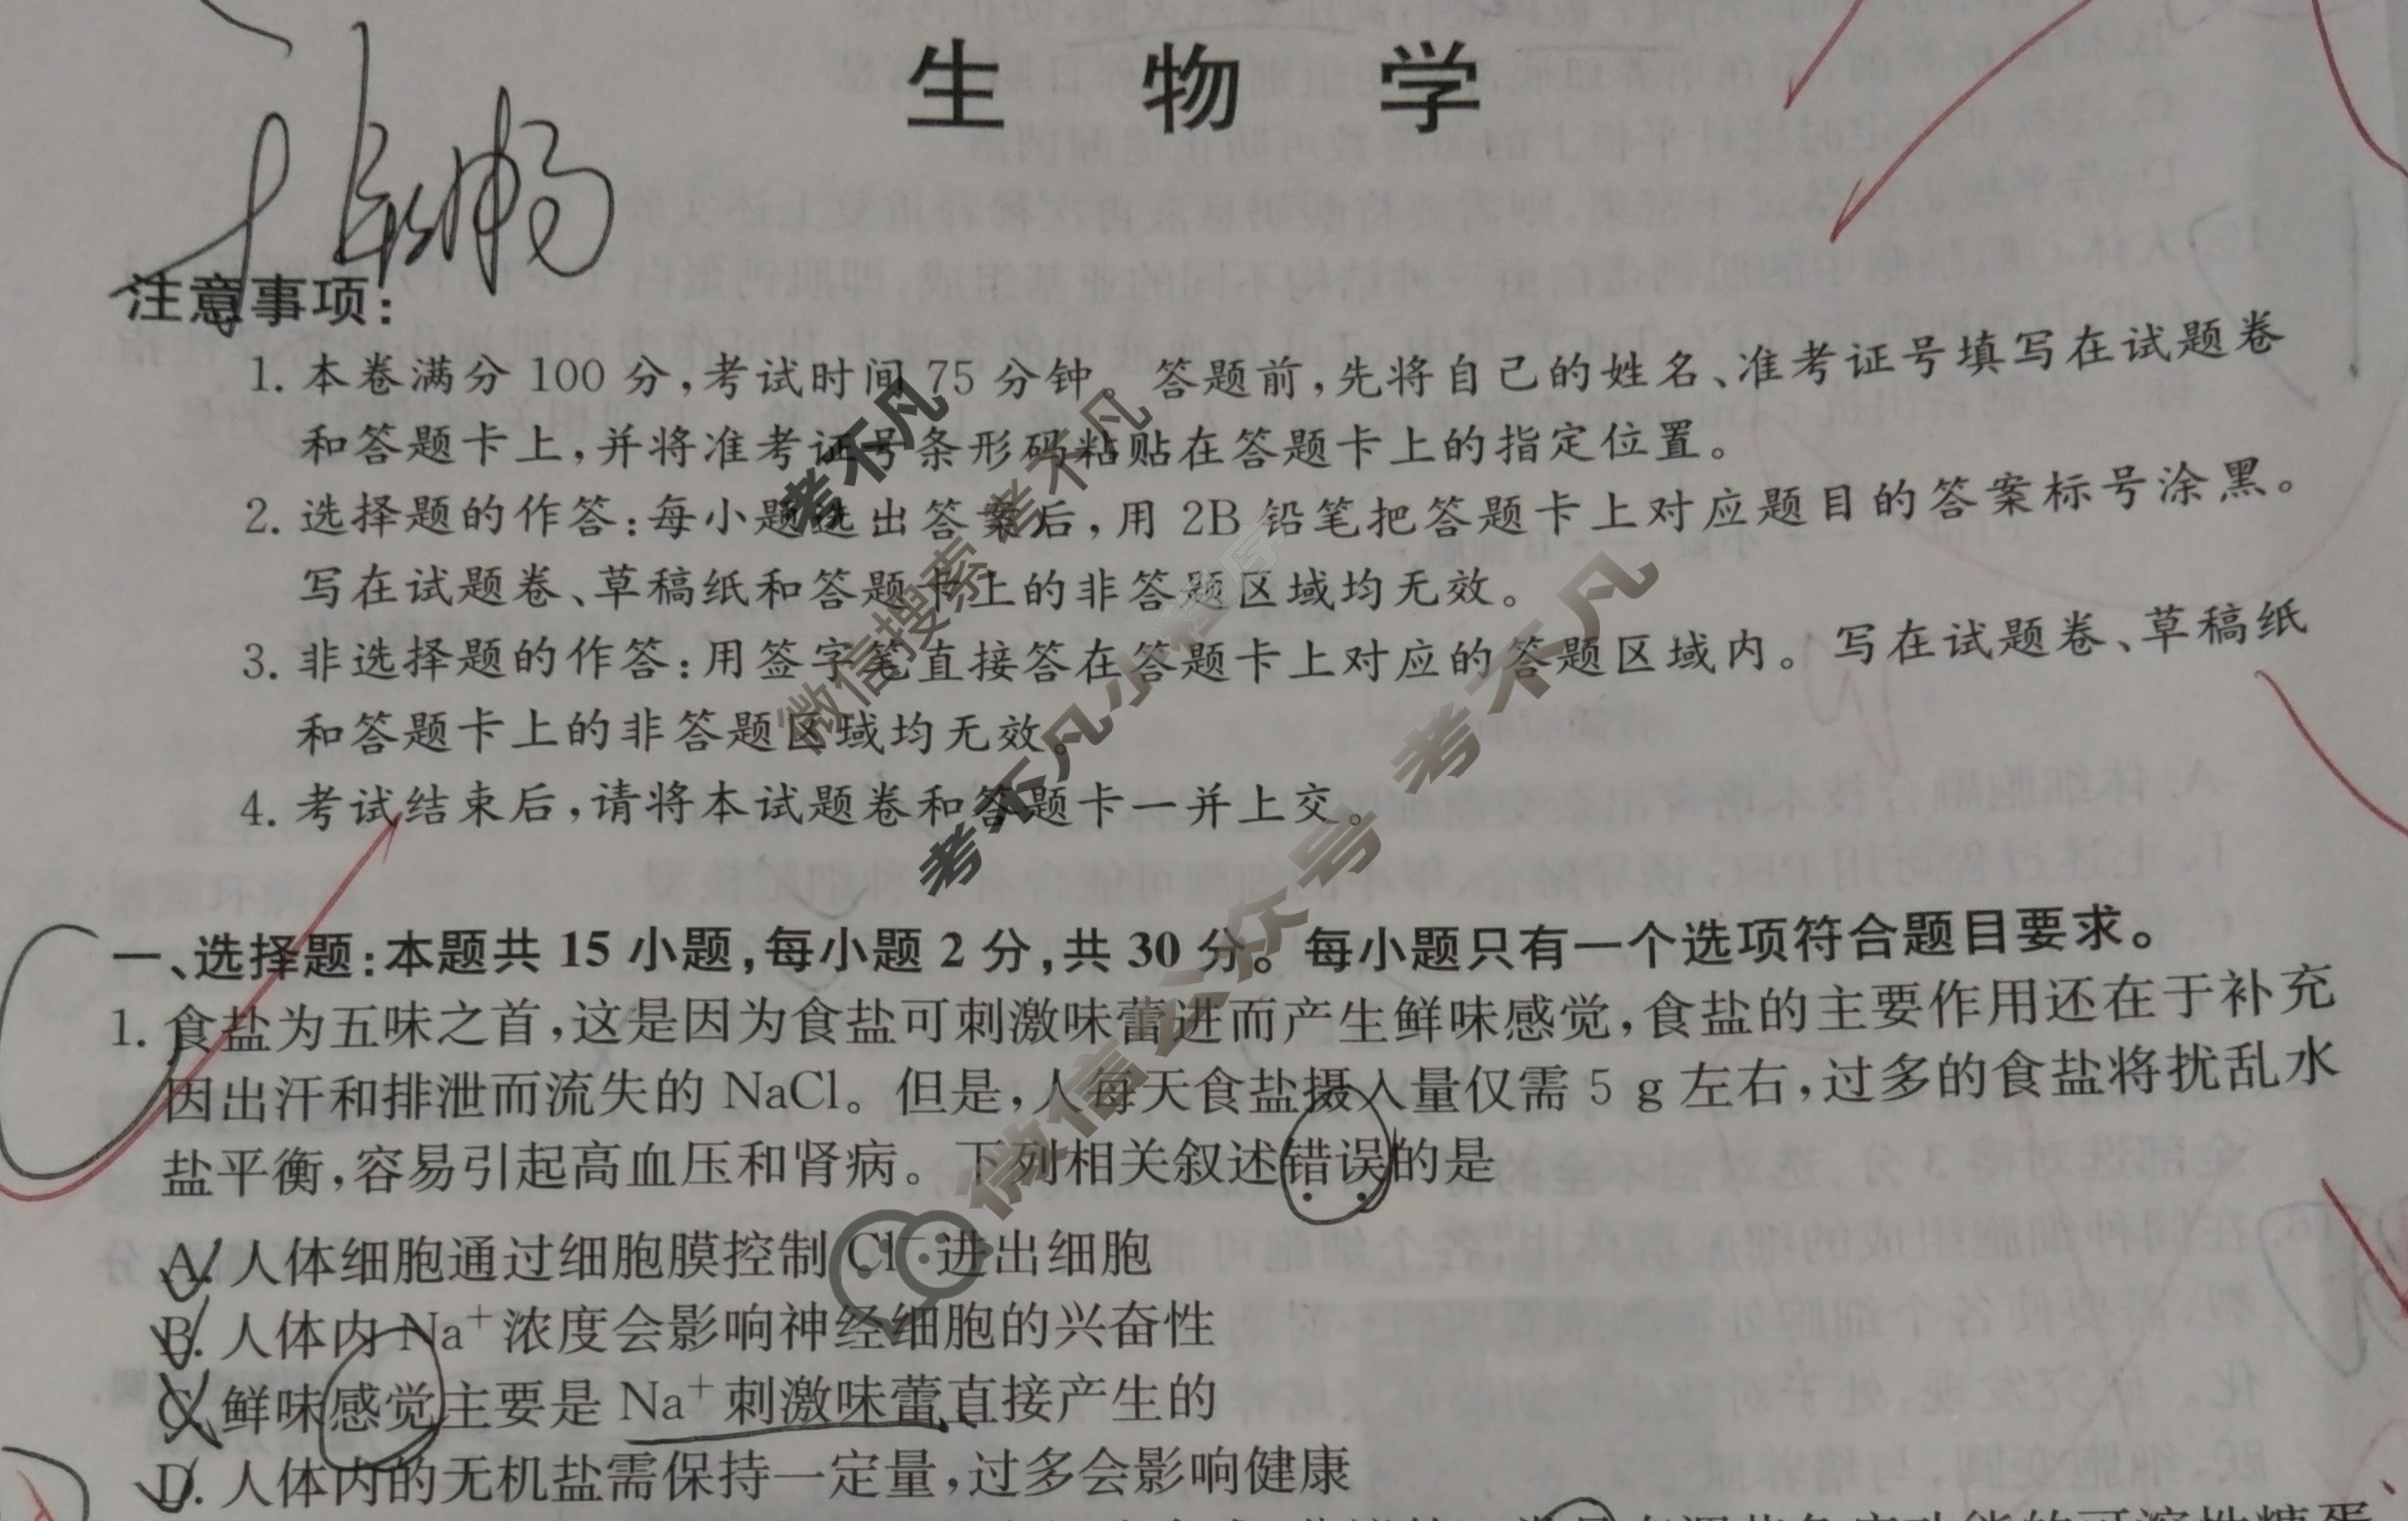 生 物 学
注意事项:
1. 本卷满分 100 分,考试时间 75 分钟。答题前,先将自己的姓名、准考证号填写在试题卷
和答题卡上,并将准考证号条形码粘贴在答题卡上的指定位置。
2. 选择题的作答:每小题选出答案后,用 2B 铅笔把答题卡上对应题目的答案标号涂黑。
写在试题卷、草稿纸和答题卡上的非答题区域均无效。
3. 非选择题的作答:用签字笔直接答在答题卡上对应的答题区域内。写在试题卷、草稿纸
和答题卡上的非答题区域均无效。
4. 考试结束后,请将本试题卷和答题卡一并上交。
考不凡
微信搜索 考不凡
考不凡小程序
微信公众号 考不凡
一、选择题:本题共 15 小题,每小题 2 分,共 30 分。每小题只有一个选项符合题目要求。
1. 食盐为五味之首,这是因为食盐可刺激味蕾进而产生鲜味感觉,食盐的主要作用还在于补充
因出汗和排泄而流失的 NaCl。但是,人每天食盐摄入量仅需 5 g 左右,过多的食盐将扰乱水
盐平衡,容易引起高血压和肾病。下列相关叙述错误的是
A. 人体细胞通过细胞膜控制 Cl⁻ 进出细胞
B. 人体内 Na⁺ 浓度会影响神经细胞的兴奋性
C. 鲜味感觉主要是 Na⁺ 刺激味蕾直接产生的
D. 人体内的无机盐需保持一定量,过多会影响健康